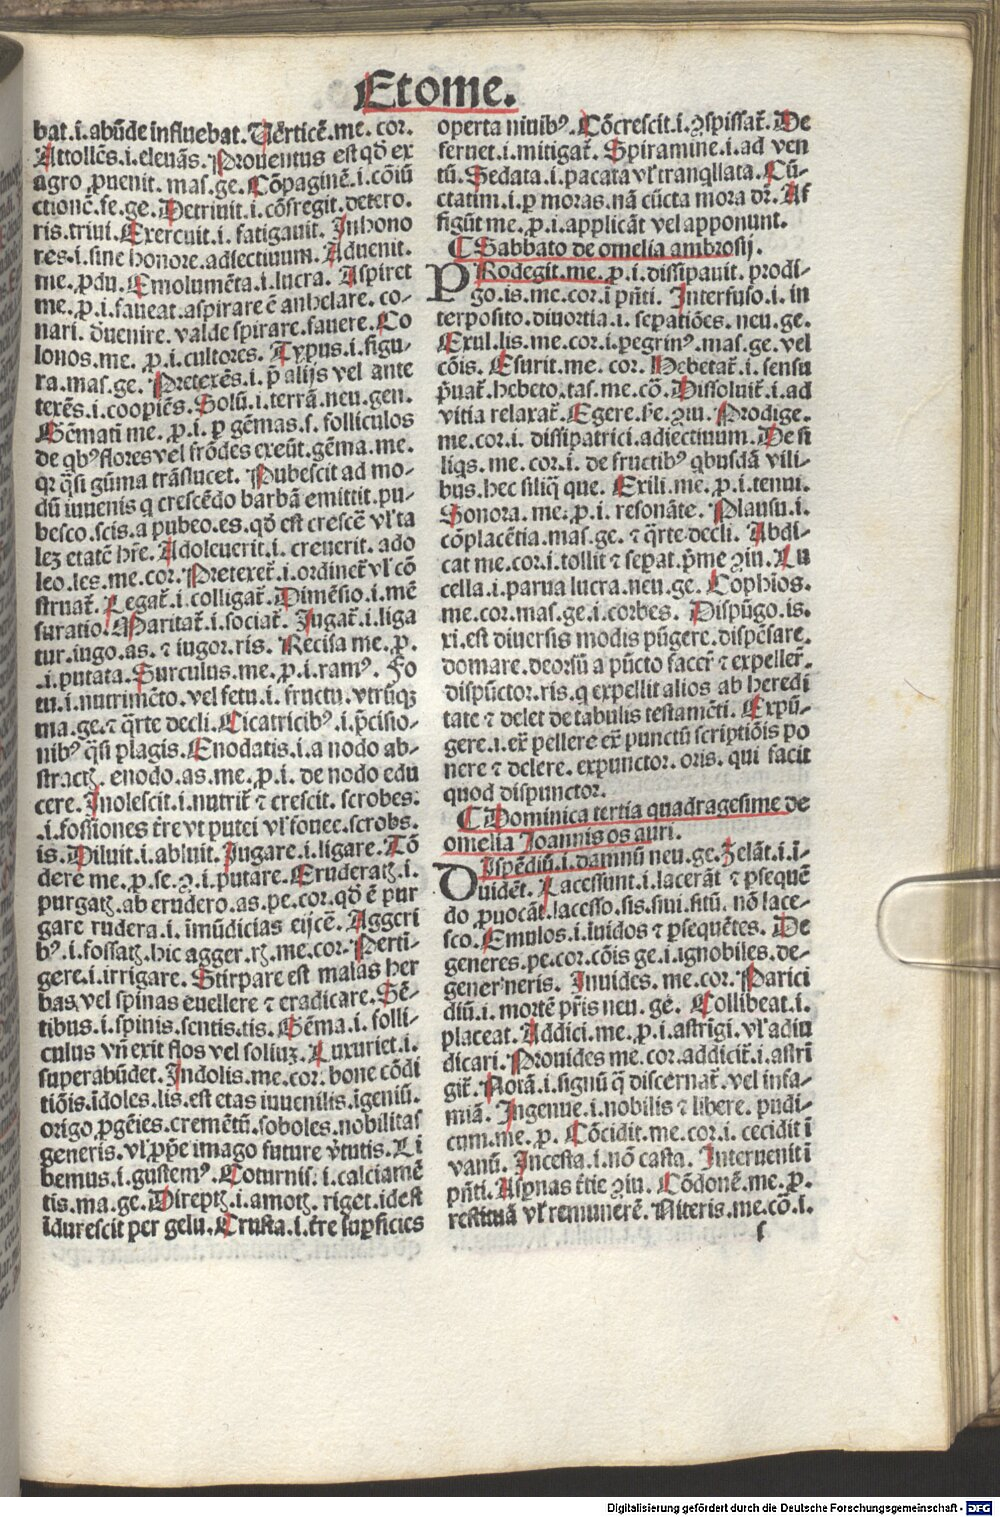 Etome.
bat.i.abūde influebat. Vērticē.me. cor.
Attollēs.i.eleuās. Prouentus est qđ ex
agro ꝓuenit. mas.ge. Cōpaginē.i.cōiū
ctionē.fe.ge. Detriuit.i.cōfregit.detero.
ris.triui. Exercuit.i. fatigauit. Inhono
res.i.sine honore.adiectiuum. Aduenit.
me.ꝓdu. Emolumēta.i.lucra. Aspiret
me.ꝓ.i.faueat.aspirare ē anhelare. co-
nari. đuenire. valde spirare.fauere. Co
lonos.me. ꝓ.i.cultores. Typus.i.figu-
ra.mas.ge. Pretexēs.i.p̄ alijs vel ante
texēs.i.coopiēs. Solū.i.terrā.neu.gen.
Gēmati me. ꝓ.i. ꝑ gēmas.s. folliculos
de qb⁹ flores vel frōdes exeūt.gēma.me.
qr q̄si gūma trāslucet. Pubescit ad mo-
dū iuuenis q crescēdo barbā emittit.pu-
besco.scis.a pubeo.es.qđ est crescē vl̓ ta
lez etatē hr̄e. Adoleuerit.i. creuerit. ado
leo.les.me.cor. Pretexet̄.i.ordinet̄ vl̓ cō
struat̄. Legat̄.i.colligat̄. Dimēsio.i.mē
suratio. Maritat̄.i.sociat̄. Iugat̄.i.liga
tur.iugo.as. ⁊ iugor.ris. Recisa me. ꝓ.
.i.putata. Surculus.me.ꝓ.i.ram⁹. Fo
tu.i.nutrimēto.vel fetu.i. fructu.vtrūqꝫ
ma.ge.⁊ q̄rte decli. Cicatricib⁹.i.p̄cisio-
nib⁹ q̄si plagis. Enodatis.i.a nodo ab-
stractꝭ. enodo.as.me.ꝓ.i. de nodo edu
cere. Inolescit.i.nutrit̄ ⁊ crescit. scrobes.
.i.fossiones t̄re vt putei vl̓ fouee.scrobs.
is. Diluit.i.abluit. Iugare.i.ligare. Tō
dere me.ꝓ.se.ꝯ.i.putare. Eruderatꝭ.i.
purgatꝭ.ab erudero.as.pe.cor.qđ ē pur
gare rudera.i.imūdicias eijcē. Aggeri
b⁹.i.fossatꝭ.hic agger.rꝭ.me.cor. Perti-
gere.i.irrigare. Stirpare est malas her
bas vel spinas euellere ⁊ eradicare. Sē-
tibus.i.spinis.sentis.tis. Gēma.i. folli-
culus vn̄ exit flos vel foliuꝫ. Luxuriet.i.
superabūdet. Indolis.me.cor. bone cōdi
tiōis.īdoles.lis.est etas iuuenilis.īgeniū.
origo.ꝓgēies.cremētū.soboles.nobilitas
generis.vl̓ ꝓp̄e imago future v̓tutis. Li
bemus.i.gustem⁹. Coturnis.i.calciamē
tis.ma.ge. Direptꝭ.i.amotꝭ. riget.idest
īdurescit per gelu. Crusta.i.t̄re suꝑficies
operta niuib⁹. Cōcrescit.i.ꝯspissat̄. De
feruet.i.mitigat̄. Spiramine.i.ad ven
tū. Sedata.i.pacata vl̓ tranqllata. Cū-
ctatim.i.ꝑ moras.nā cūcta mora dr̄. Af
figūt me. ꝓ.i.applicāt vel apponunt.
Sabbato de omelia ambrosij.
PRodegit.me.ꝓ.i.dissipauit. prodi-
go.is.me.cor.ī pn̄ti. Interfuso.i. in
terposito.diuortia.i. sepatiōes. neu.ge.
Exul.lis.me.cor.i.ꝑegrin⁹.mas.ge.vel
cōis. Esurit.me. cor. Hebetat̄.i. sensu
p̄uat̄.hebeto.tas.me.cō. Dissoluit̄.i.ad
vitia relaxat̄. Egere.se.ꝯiu. Prodige.
me.cor.i. dissipatrici.adiectiuum. De si
liqs.me.cor.i. de fructib⁹ qbusdā vili-
bus.hec siliq que. Exili.me.ꝓ.i.tenui.
Sonora. me.ꝓ.i. resonāte. Plausu.i.
cōplacētia.mas.ge. ⁊ q̄rte decli. Abdi-
cat me.cor.i.tollit ⁊ sepat.p̄me ꝯiu. Lu
cella.i.parua lucra.neu.ge. Cophios.
me.cor.mas.ge.i.corbes. Dispūgo.is.
xi.est diuersis modis pūgere.dispēsare.
domare.deorsū a pūcto facer̄ ⁊ expeller̄.
dispūctor.ris.q expellit alios ab heredi
tate ⁊ delet de tabulis testamēti. Expū-
gere.i.ex̄ pellere ex̄ punctū scriptiōis po
nere ⁊ delere. expunctor. oris. qui facit
quod dispunctor.
Dominica tertia quadragesime de
omelia Joannis os auri.
DIspēdiū.i.damnū neu.ge. Zelāt.i.ī-
uidēt. Lacessunt.i.lacerāt ⁊ ꝑsequē
do ꝓuocāt.lacesso.sis.siui.sitū. nō lace-
sco. Emulos.i.īuidos ⁊ ꝑsequētes. De
generes.pe.cor.cōis ge.i.ignobiles.de-
gener neris. Inuides. me.cor. Parici
diū.i. mortē pr̄is neu. ge. Collibeat.i.
placeat. Addici.me. ꝓ.i.astrigi. vl̓ adiu
dicari. Prouides me.cor.addicit̄.i.astrī
git̄. Notā.i.signū q̄ discernat̄.vel infa-
miā. Ingenue.i.nobilis ⁊ libere. pudi-
cum.me. ꝓ. Cōcidit.me.cor.i. cecidit ī
vanū. Incesta.i.nō casta. Interuenit ī
pn̄ti. Aspnas t̄tie ꝯiu. Cōdonē.me.ꝓ.
restituā vl̓ remunerē. Niteris.me.cō.i.
f
Digitalisierung gefördert durch die Deutsche Forschungsgemeinschaft - DFG